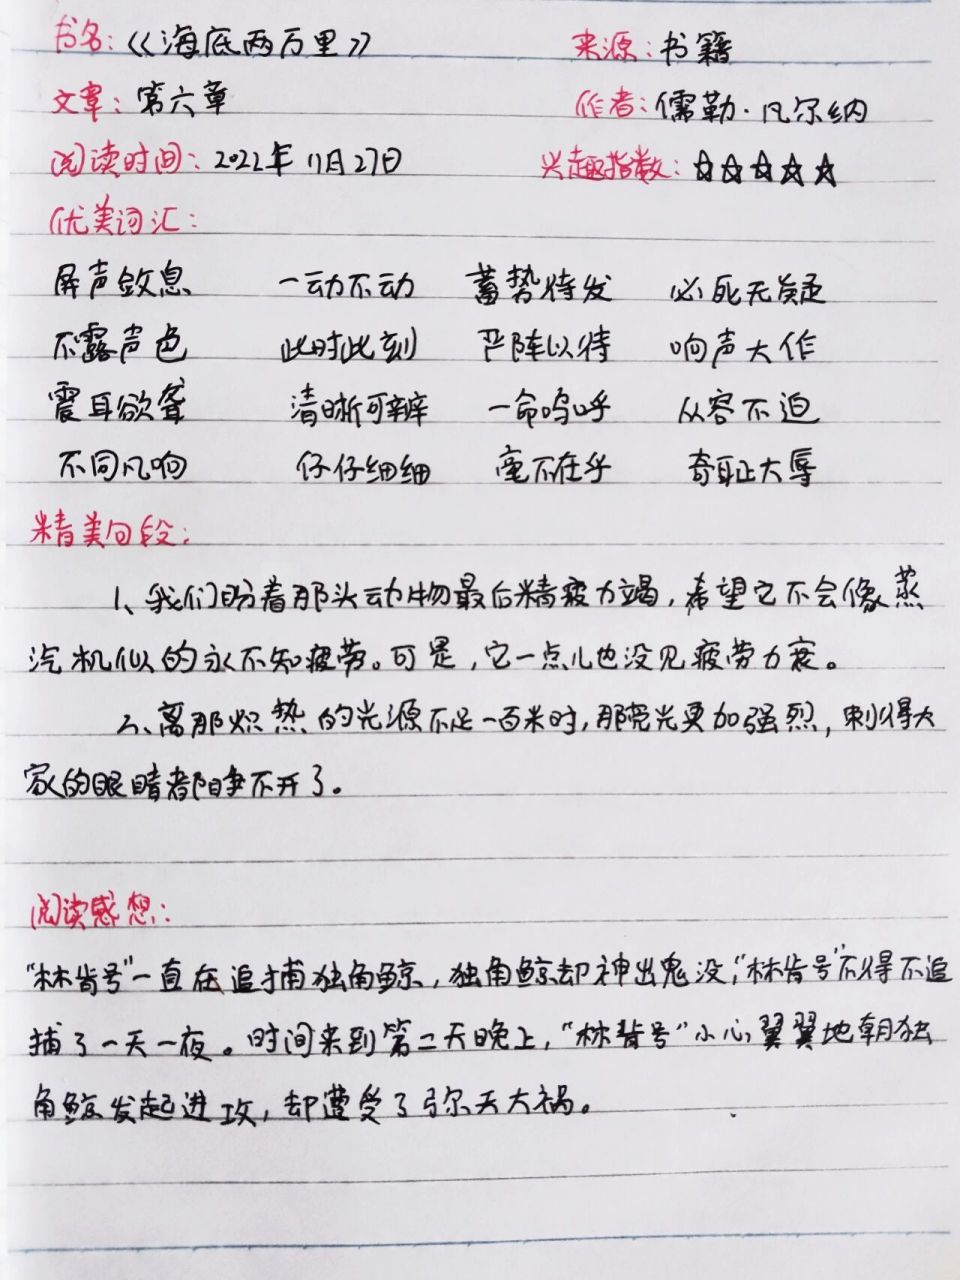 书名：《海底两万里》 来源：书籍
文章：第六章 作者：儒勒·凡尔纳
阅读时间：2022年11月27日 兴趣指数：☆☆☆☆☆
优美词汇：
屏声敛息 一动不动 蓄势待发 必死无疑
不露声色 此时此刻 严阵以待 响声大作
震耳欲聋 清晰可辨 一命呜呼 从容不迫
不同凡响 仔仔细细 毫不在乎 奇耻大辱
精美句段：
1、我们盼着那头动物最后精疲力竭，希望它不会像蒸
汽机似的永不知疲劳。可是，它一点儿也没见疲劳力衰。
2、离那炽热的光源不足一百米时，那亮光更加强烈，刺得大
家的眼睛都睁不开了。
阅读感想：
"林肯号"一直在追捕独角鲸，独角鲸却神出鬼没，"林肯号"不得不追
捕了一天一夜。时间来到第二天晚上，"林肯号"小心翼翼地朝独
角鲸发起进攻，却遭受了弥天大祸。